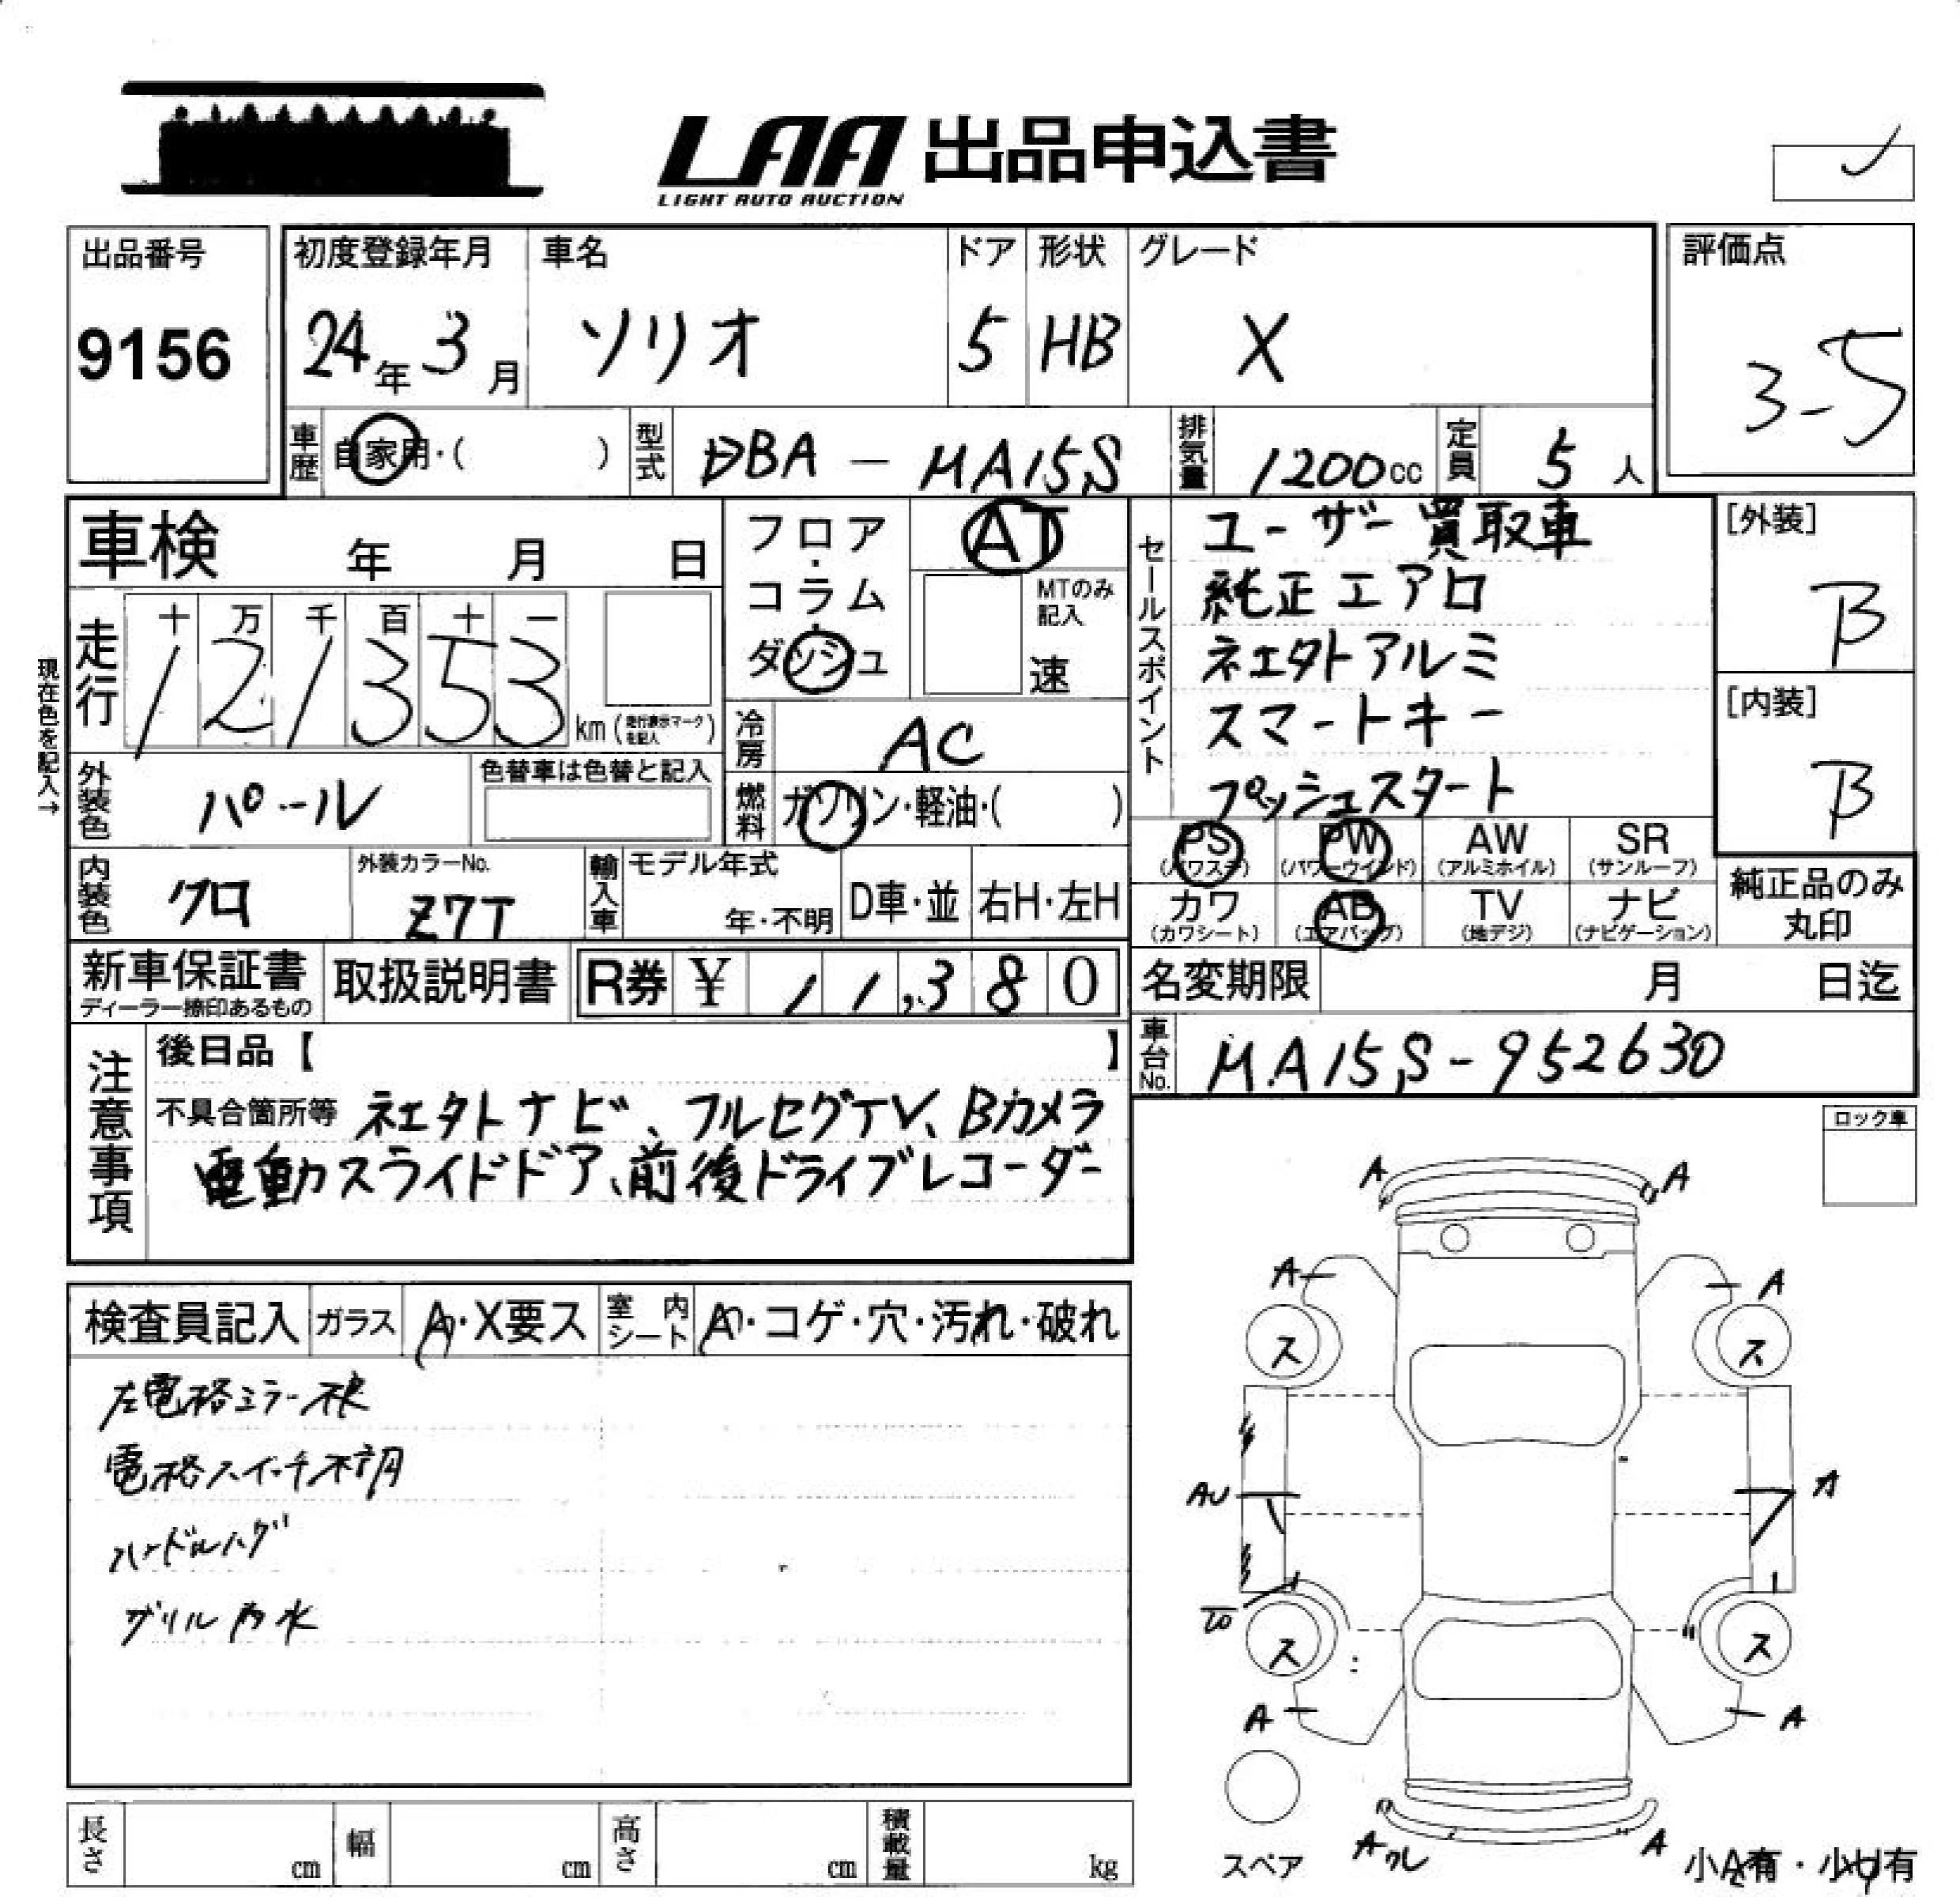 LAA 出品申込書
LIGHT AUTO AUCTION
出品番号
9156
初度登録年月
24年 3月
車名
ソリオ
ドア
5
形状
HB
グレード
X
評価点
3-5
車歴 自家用・( )
型式 DBA - MA15S
排気量 1200cc
定員 5人
車検 年 月 日
フロア・コラム・ダッシュ
AT
MTのみ記入
速
現在色を記入→
走行 十 万 千 百 十 一
121353 km (走行表示マークを記入)
冷房 AC
燃料 ガソリン・軽油・( )
外装色 パール
色替車は色替と記入
内装色 クロ
外装カラーNo. Z7T
輸入車 モデル年式 年・不明
D車・並 右H・左H
セールスポイント
ユーザー買取車
純正エアロ
社エタトアルミ
スマートキー
プッシュスタート
[外装]
B
[内装]
B
PS (パワステ) PW (パワーウインド) AW (アルミホイル) SR (サンルーフ)
カワ (カワシート) AB (エアバッグ) TV (地デジ) ナビ (ナビゲーション)
純正品のみ丸印
新車保証書
ディーラー捺印あるもの
取扱説明書
R券 ¥ 11,380
名変期限 月 日迄
車台No. MA15S-952630
注意事項
後日品【 】
不具合箇所等 社エタトナビ、フルセグTV、Bカメラ
電動スライドドア、前後ドライブレコーダー
ロック車
検査員記入 ガラス A・X要ス 室内シート A・コゲ・穴・汚れ・破れ
左電格ミラー不良
電格スイッチ不調
ハンドルハゲ
グリル内水
A A
A A
ス ス
AU A
ス ス
A A
Aワレ A
スペア
小A有・小U有
長さ cm 幅 cm 高さ cm 積載量 kg